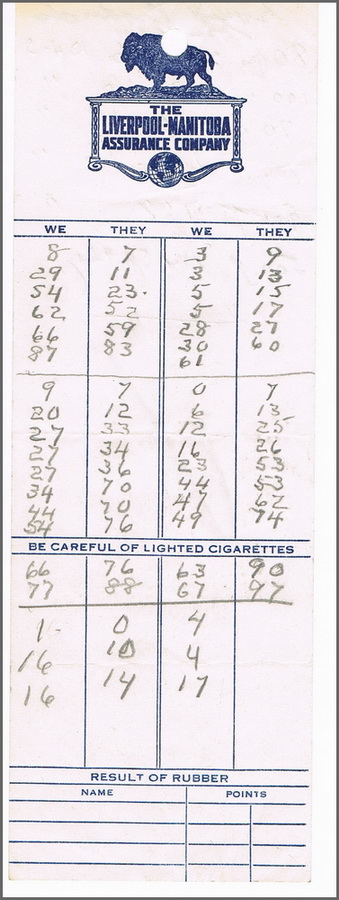 THE
LIVERPOOL-MANITOBA
ASSURANCE COMPANY
WE THEY WE THEY
8 7 3 9
29 11 3 13
54 23 5 15
62 52 5 17
66 59 28 27
87 83 30 60
61
9 7 0 7
20 12 6 13
27 33 12 25
27 34 16 26
27 36 23 53
34 70 44 53
44 70 47 62
54 76 49 74
BE CAREFUL OF LIGHTED CIGARETTES
66 76 63 90
77 88 67 97
1 0 4
16 10 4
16 14 17
RESULT OF RUBBER
NAME POINTS